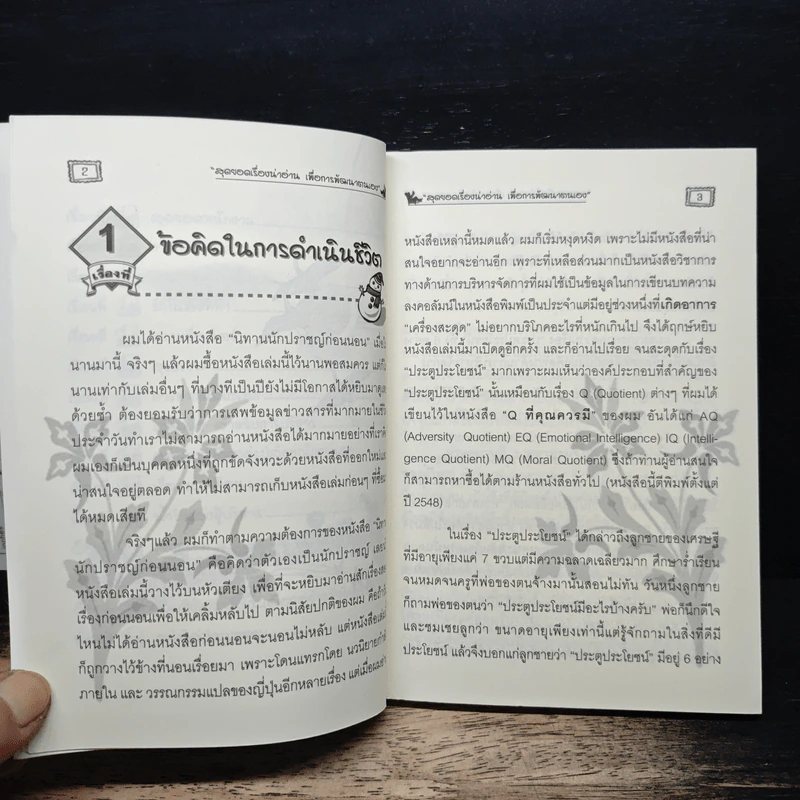 2
"สุดยอดเรื่องน่าอ่าน เพื่อการพัฒนาตนเอง"
1
เรื่องที่
ข้อคิดในการดำเนินชีวิต
ผมได้อ่านหนังสือ "นิทานนักปราชญ์ก่อนนอน"
นานมานี้ จริงๆ แล้วผมซื้อหนังสือเล่มนี้ไว้นานพอสมควร
นานเท่ากับเล่มอื่นๆ ที่บางทีเป็นปียังไม่มีโอกาสได้หยิบมาดู
ด้วยซ้ำ ต้องยอมรับว่าการเสพข้อมูลข่าวสารที่มากมายใน
ประจำวันทำเราไม่สามารถอ่านหนังสือได้มากมายอย่างที่เรา
ผมเองก็เป็นบุคคลหนึ่งที่ถูกขัดจังหวะด้วยหนังสือที่ออกใหม่
น่าสนใจอยู่ตลอด ทำให้ไม่สามารถเก็บหนังสือเล่มก่อนๆ ที่
ได้หมดเสียที
จริงๆแล้ว ผมก็ทำตามความต้องการของหนังสือ "นิทาน
นักปราชญ์ก่อนนอน" คือคิดว่าตัวเองเป็นนักปราชญ์
หนังสือเล่มนี้วางไว้บนหัวเตียง เพื่อที่จะหยิบมาอ่านสัก
เรื่องก่อนนอนเพื่อให้เคลิ้มหลับไป ตามนิสัยปกติของผม
ไหนไม่ได้อ่านหนังสือก่อนนอนจะนอนไม่หลับ แต่หนังสือ
ก็ถูกวางไว้ข้างที่นอนเรื่อยมา เพราะโดนแทรกโดย นวนิยาย
ภายใน และ วรรณกรรมแปลของญี่ปุ่นอีกหลายเรื่อง แต่เมื่อ
"สุดยอดเรื่องน่าอ่าน เพื่อการพัฒนาตนเอง"
3
หนังสือเหล่านี้หมดแล้ว ผมก็เริ่มหงุดหงิด เพราะไม่มีหนังสือที่น่า
สนใจอยากจะอ่านอีก เพราะที่เหลือส่วนมากเป็นหนังสือวิชาการ
ทางด้านการบริหารจัดการที่ผมใช้เป็นข้อมูลในการเขียนบทความ
ลงคอลัมน์ในหนังสือพิมพ์เป็นประจำแต่มีอยู่ช่วงหนึ่งที่เกิดอาการ
"เครื่องสะดุด" ไม่อยากบริโภคอะไรที่หนักเกินไป จึงได้ฤกษ์หยิบ
หนังสือเล่มนี้มาเปิดดูอีกครั้ง และก็อ่านไปเรื่อย จนสะดุดกับเรื่อง
"ประตูประโยชน์" มากเพราะผมเห็นว่าองค์ประกอบที่สำคัญของ
"ประตูประโยชน์" นั้นเหมือนกับเรื่อง Q (Quotient) ต่างๆ ที่ผมได้
เขียนไว้ในหนังสือ "Q ที่คุณควรมี" ของผม อันได้แก่ AQ
(Adversity Quotient) EQ (Emotional Intelligence) IQ (Intelli-
gence Quotient) MQ (Moral Quotient) ซึ่งถ้าท่านผู้อ่านสนใจ
ก็สามารถหาซื้อได้ตามร้านหนังสือทั่วไป (หนังสือนี้ตีพิมพ์ตั้งแต่
ปี 2548)
ในเรื่อง "ประตูประโยชน์" ได้กล่าวถึงลูกชายของเศรษฐี
ที่มีอายุเพียงแค่ 7 ขวบแต่มีความฉลาดเฉลียวมาก ศึกษาร่ำเรียน
จนหมดจนครูที่พ่อของตนจ้างมานั้นสอนไม่ทัน วันหนึ่งลูกชาย
ก็ถามพ่อของตนว่า "ประตูประโยชน์มีอะไรบ้างครับ" พ่อก็นึกดีใจ
และชมเชยลูกว่า ขนาดอายุเพียงเท่านี้แต่รู้จักถามในสิ่งที่ดีมี
ประโยชน์ แล้วจึงบอกแก่ลูกชายว่า "ประตูประโยชน์" มีอยู่ 6 อย่าง